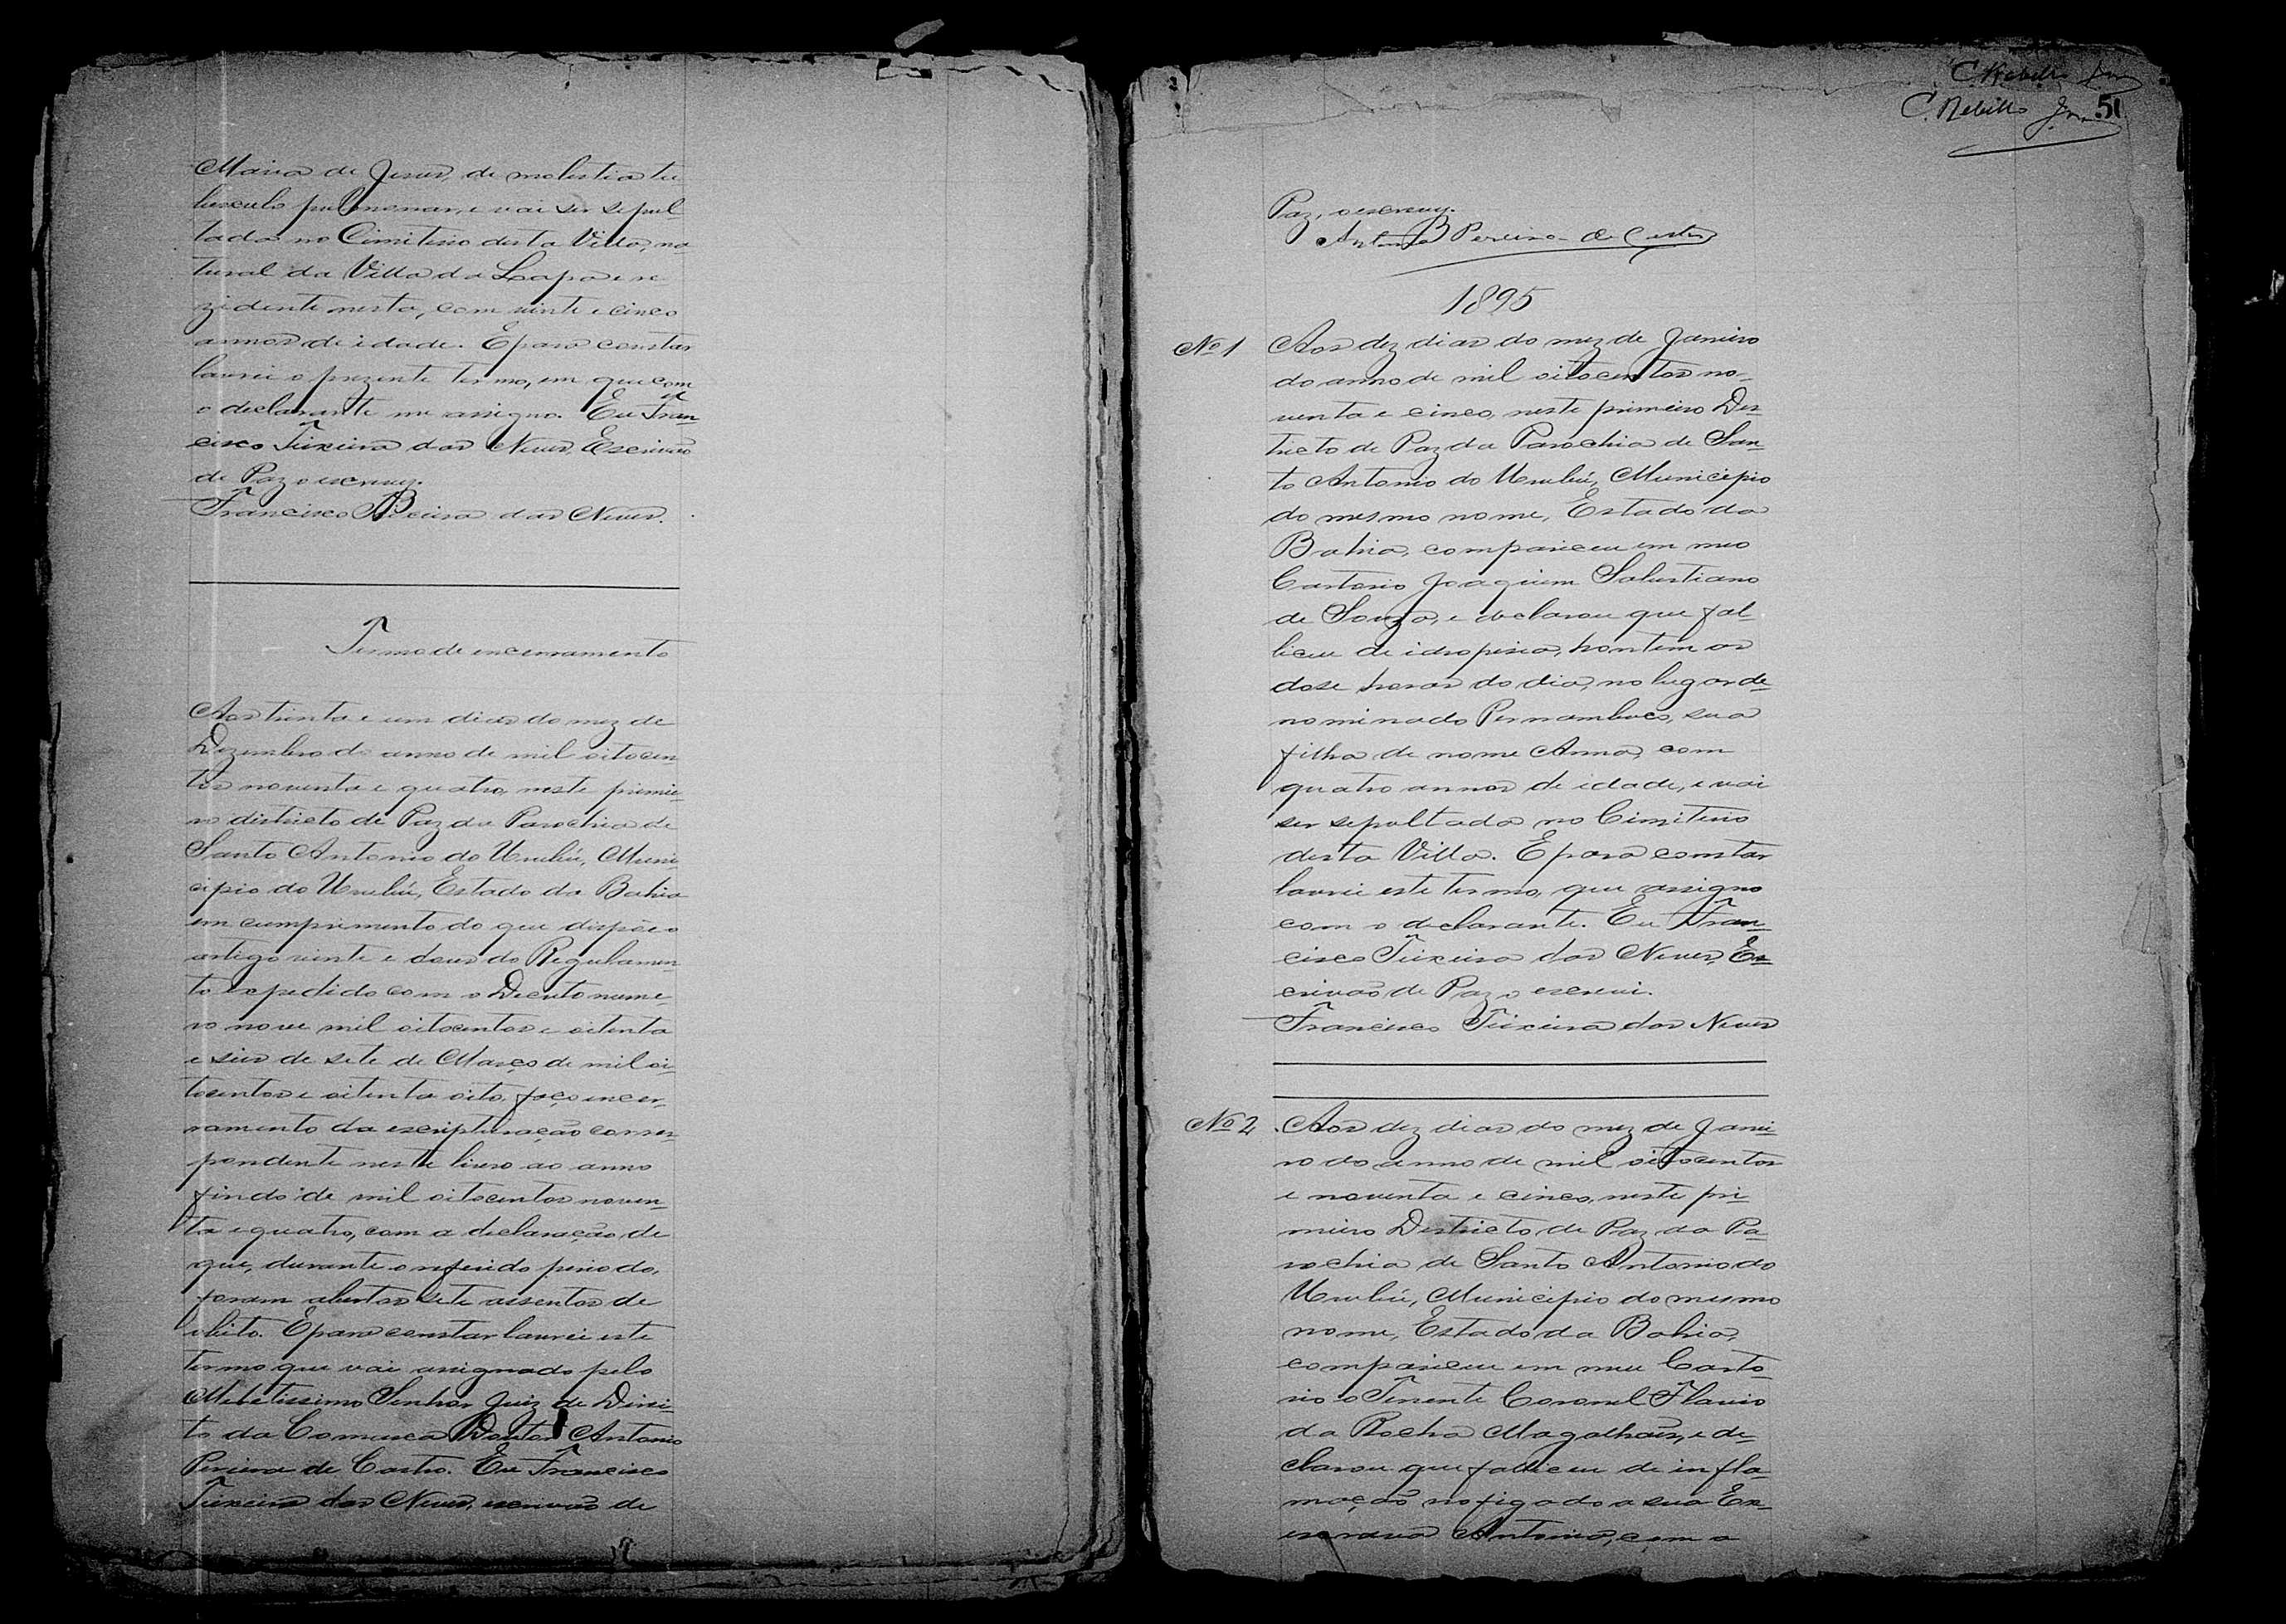 Maria de Jesus, de molestia tu
berculo pulmonar, e vai ser sepul
tada no Cimiterio desta Villa, na
tural da Villa da Lapa e re
zidente nesta, com vinte e cinco
annos de idade. E para constar
lavrei o prezente termo, em que com
o declarante me assigno. Eu Fran
cisco Teixeira das Neves, Escrivão
de Paz o escrevy.
Francisco Teixeira das Neves.
Termo de encerramento
Aos trinta e um dias do mez de
Dezembro do anno de mil oitocen
tos noventa e quatro, neste primei-
ro districto de Paz da Parochia de
Santo Antonio do Urubú, Muni
cipio do Urubú, Estado da Bahia
em cumprimento do que dispõe o
artigo vinte e dous do Regulamen-
to expedido com o Decreto nume-
ro nove mil oitocentos e oitenta
e seis de sete de Março de mil oi-
tocentos e oitenta oito, faço encer-
ramento da escripturação corres-
pondente neste livro ao anno
findo de mil oitocentos noven-
ta e quatro, com a declaração de
que, durante o referido periodo,
foram abertos sete assentos de
obito. E para constar lavrei este
termo que vai assignado pelo
Senhor Juiz de Direi-
to da Comarca Doutor Antonio
Pereira de Castro. Eu Francisco
Teixeira das Neves, escrivão de
C. Rebello Jnr
C. Rebello Jnr 51
Paz, o escrevy.
Antonio Pereira de Castro
1895
No 1 Aos dez dias do mez de Janeiro
do anno de mil oitocentos no-
venta e cinco, neste primeiro Des-
tricto de Paz da Parochia de San-
to Antonio do Urubú, Municipio
do mesmo nome, Estado da
Bahia, compareceu em meo
Cartorio Joaquim Salustiano
de Souza, e declarou que fal-
leceu de idropisia, hontem as
dose horas do dia, no lugar de-
nominado Pernambuco, sua
filha de nome Anna, com
quatro annos de idade, e vai
ser sepultada no Cimiterio
desta Villa. E para constar
lavrei este termo, que assigno
com o declarante. Eu Fran-
cisco Teixeira das Neves, Es-
crivão de Paz o escrevi.
Francisco Teixeira das Neves
No 2 Aos dez dias do mez de Janei-
ro do anno de mil oitocentos
e noventa e cinco, neste pri-
meiro Destricto de Paz da Pa-
rochia de Santo Antonio do
Urubú, Municipio do mesmo
nome, Estado da Bahia,
compareceu em meu Carto-
rio o Tenente Coronel Flavio
da Rocha Magalhães, e de-
clarou que falleceu de infla-
mação no figado a sua Ex-
escrava Antonia, com o